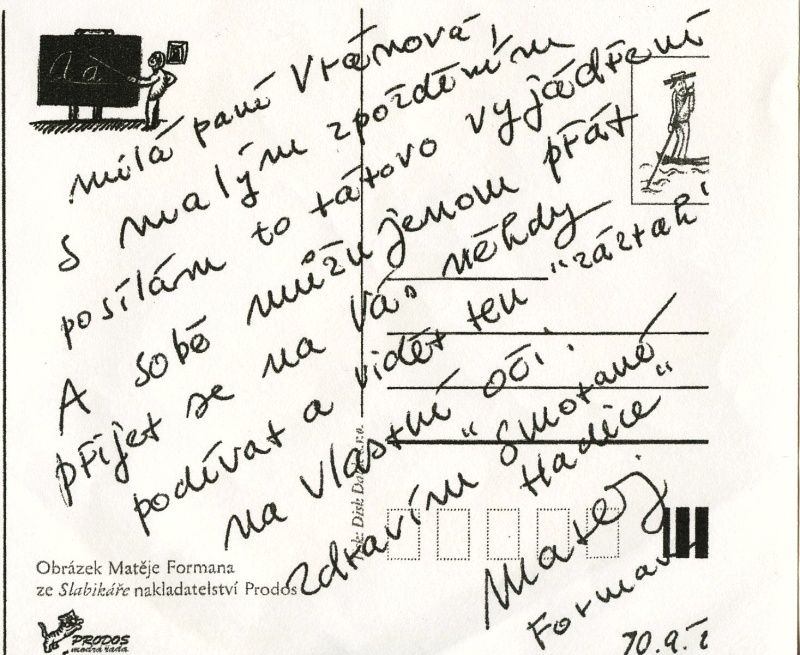 milá paní Vránová,
s malým zpožděním
posílám to tátovo vyjádření
A sobě můžu jenom přát
přijet se na Vás někdy
podívat a vidět ten "zázrak"
na vlastní oči.
zdravím "Smotané
Hadice"
Matěj
Forman
10.9.
Obrázek Matěje Formana
ze Slabikáře nakladatelství Prodos
PRODOS
modrá řada
Tisk: Disk Da s.r.o.